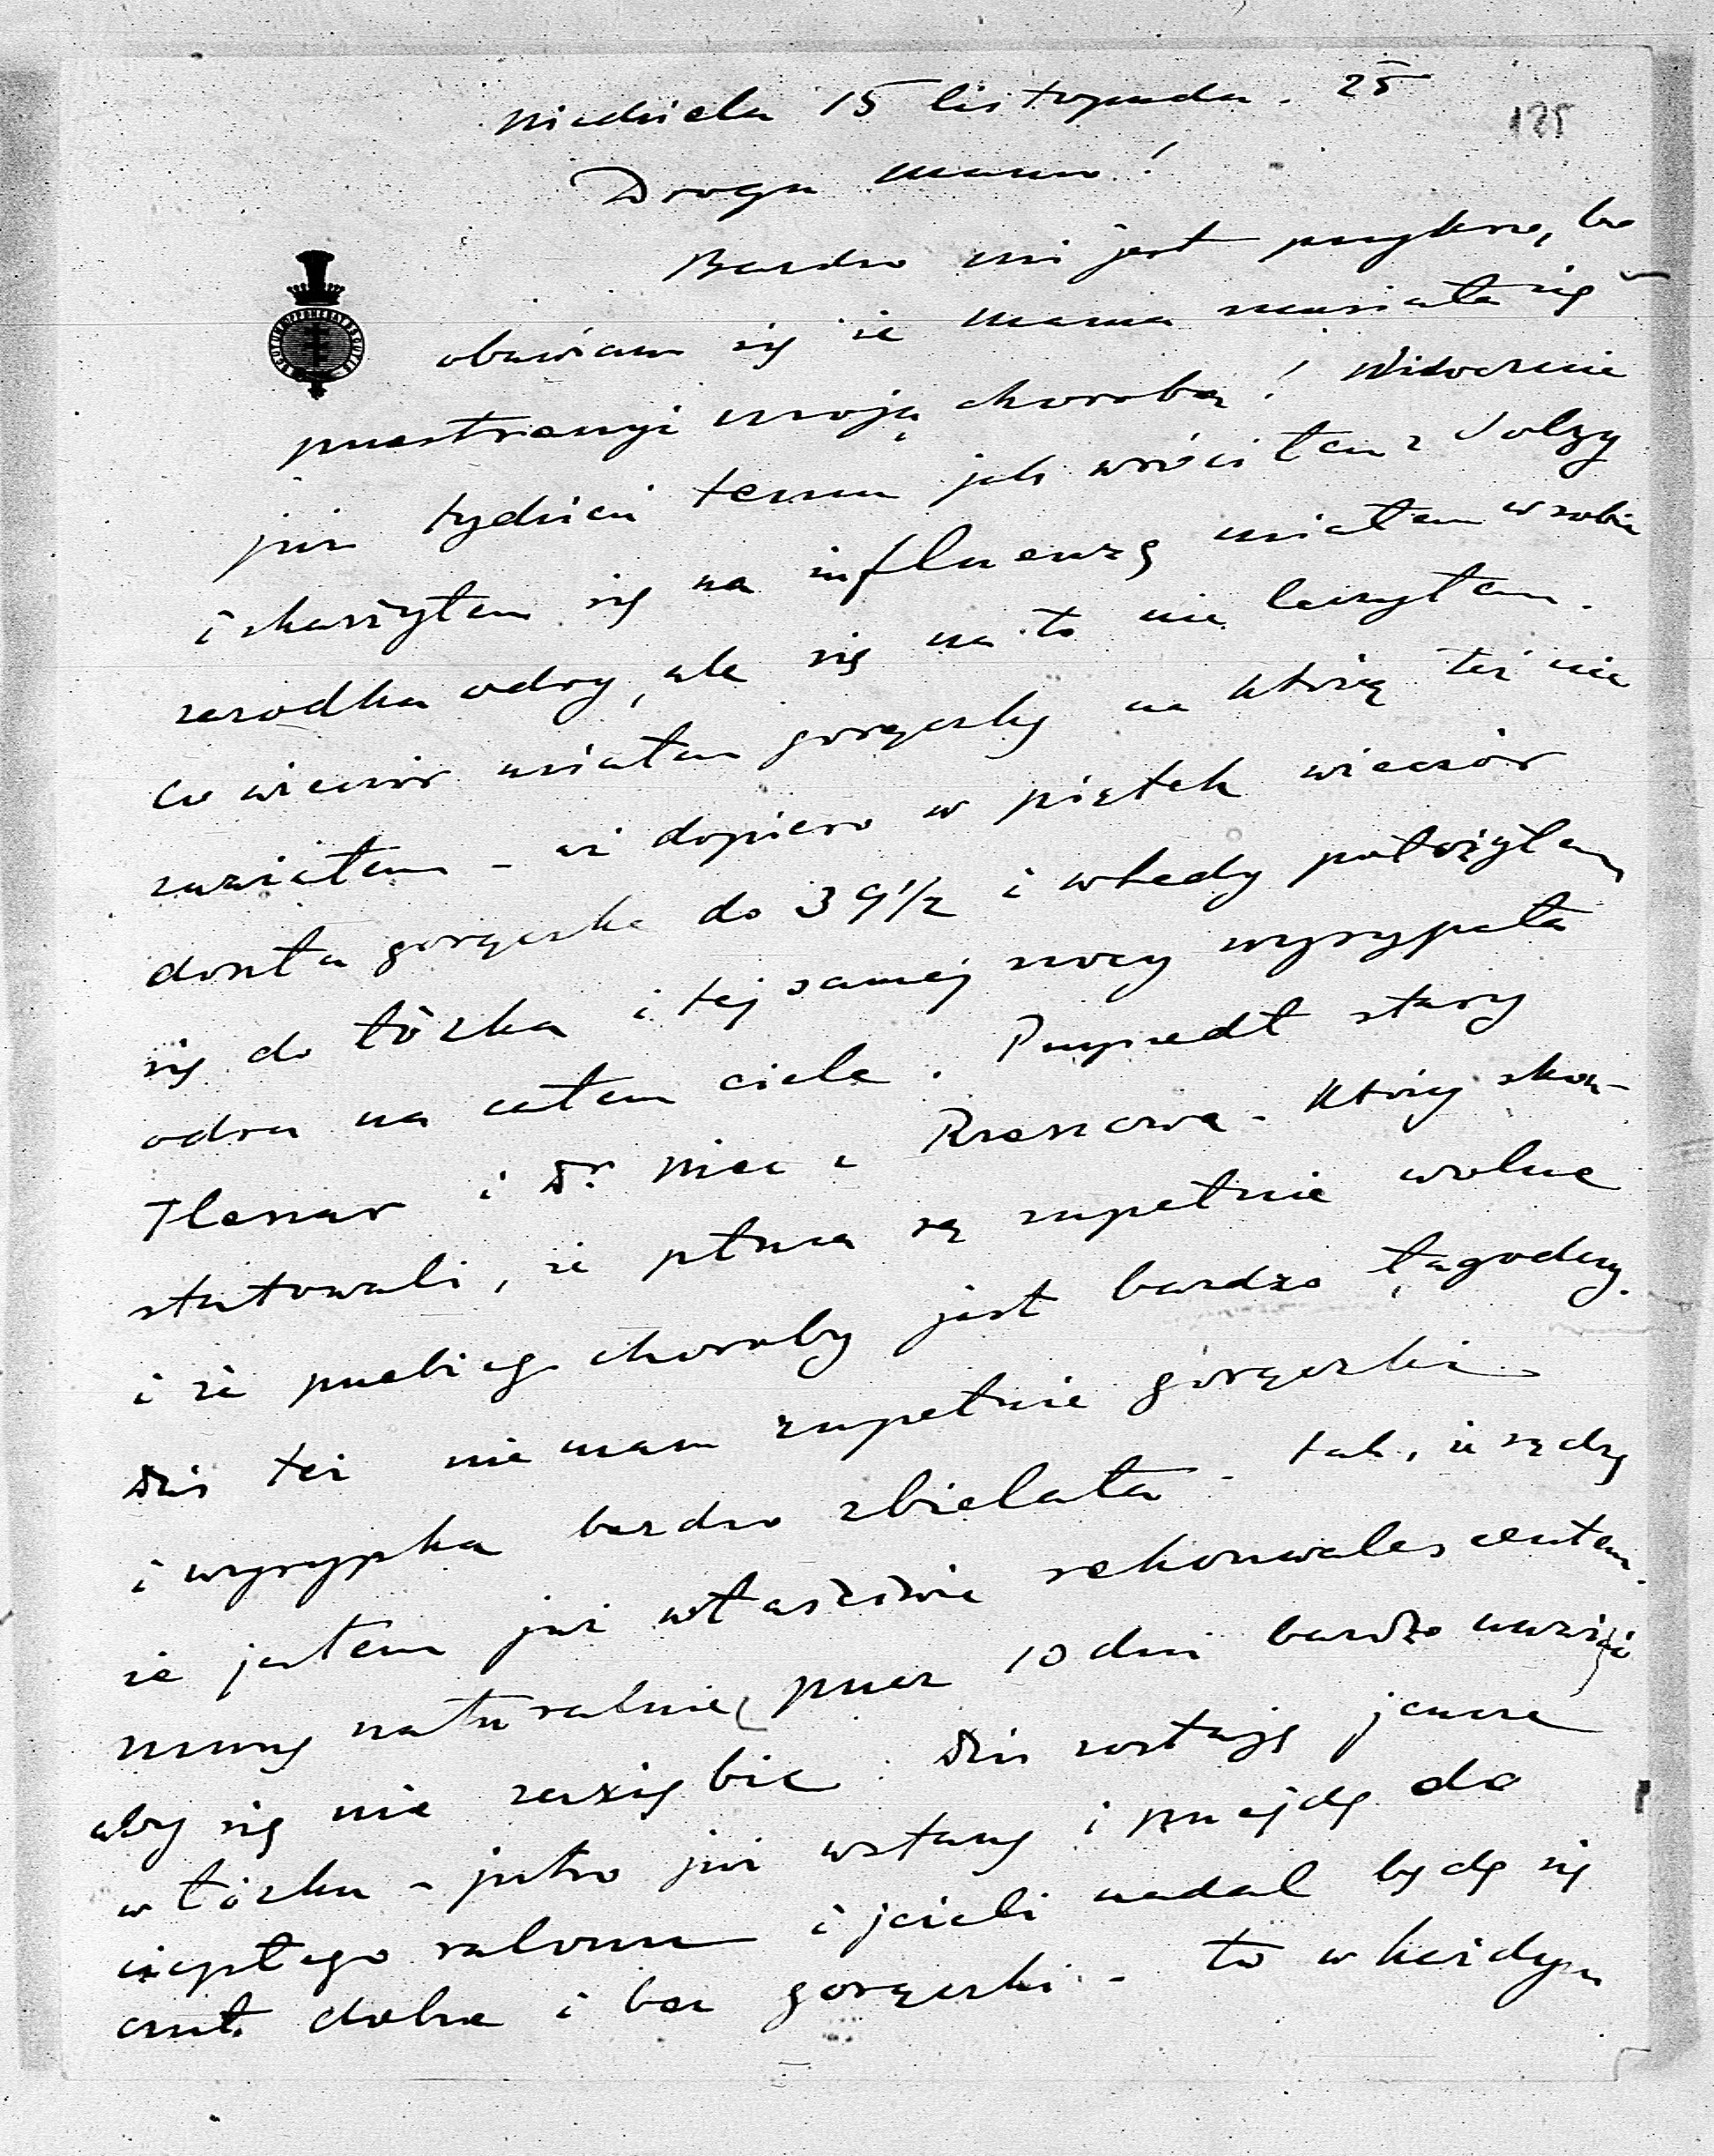 Niedziela 15 listopada. 25
125
Droga Mamo!
Bardzo mi jest przykro, bo
obawiam się że Mama musiała się
przestraszyć moją chorobą! Widocznie
już tydzień temu jak wróciłem z Solzy
i skarżyłem się na influenzę miałem w sobie
zarodka odry, ale się na to nie leczyłem.
Co wieczór miałem gorączkę na którą też nie
zważałem – aż dopiero w piątek wieczór
doszła gorączka do 39 1/2 i wtedy położyłem
się do łóżka i tej samej nocy wysypała
odra na całem ciele. Przyszedł stary
i Dr. Niec z Rzeszowa – Który skon-
statowali, że płuca są zupełnie wolne
i że przebieg choroby jest bardzo łagodny.
Dziś też nie mam zupełnie gorączki
i wysypka bardzo zbielała – tak, że sądzę
że jestem już właściwie rekonwalescentem.
Muszę naturalnie przez 10 dni bardzo uważać
aby się nie zaziębić. Dziś zostaję jeszcze
w łóżku – jutro już wstanę i przejdę do
ciepłego salonu i jeżeli nadal będę się
czuł dobrze i bez gorączki – to w każdym